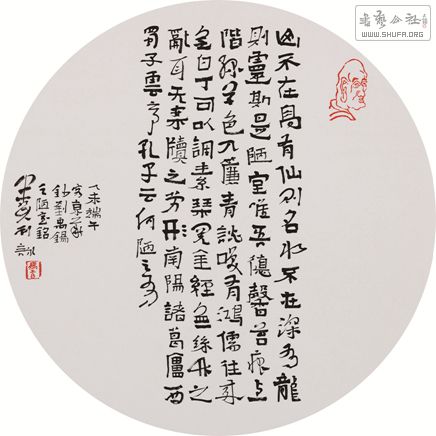 山不在高有仙则名水不在深有龍
则靈斯是陋室惟吾德馨苔痕上
階綠草色入簾青談笑有鴻儒往来
無白丁可以調素琴閱金經無絲竹之
亂耳无案牘之勞形南陽諸葛廬西
蜀子雲亭孔子云何陋之有
乙未端午
劉禹錫
之陋室銘
書藝公社
WWW.SHUFA.ORG